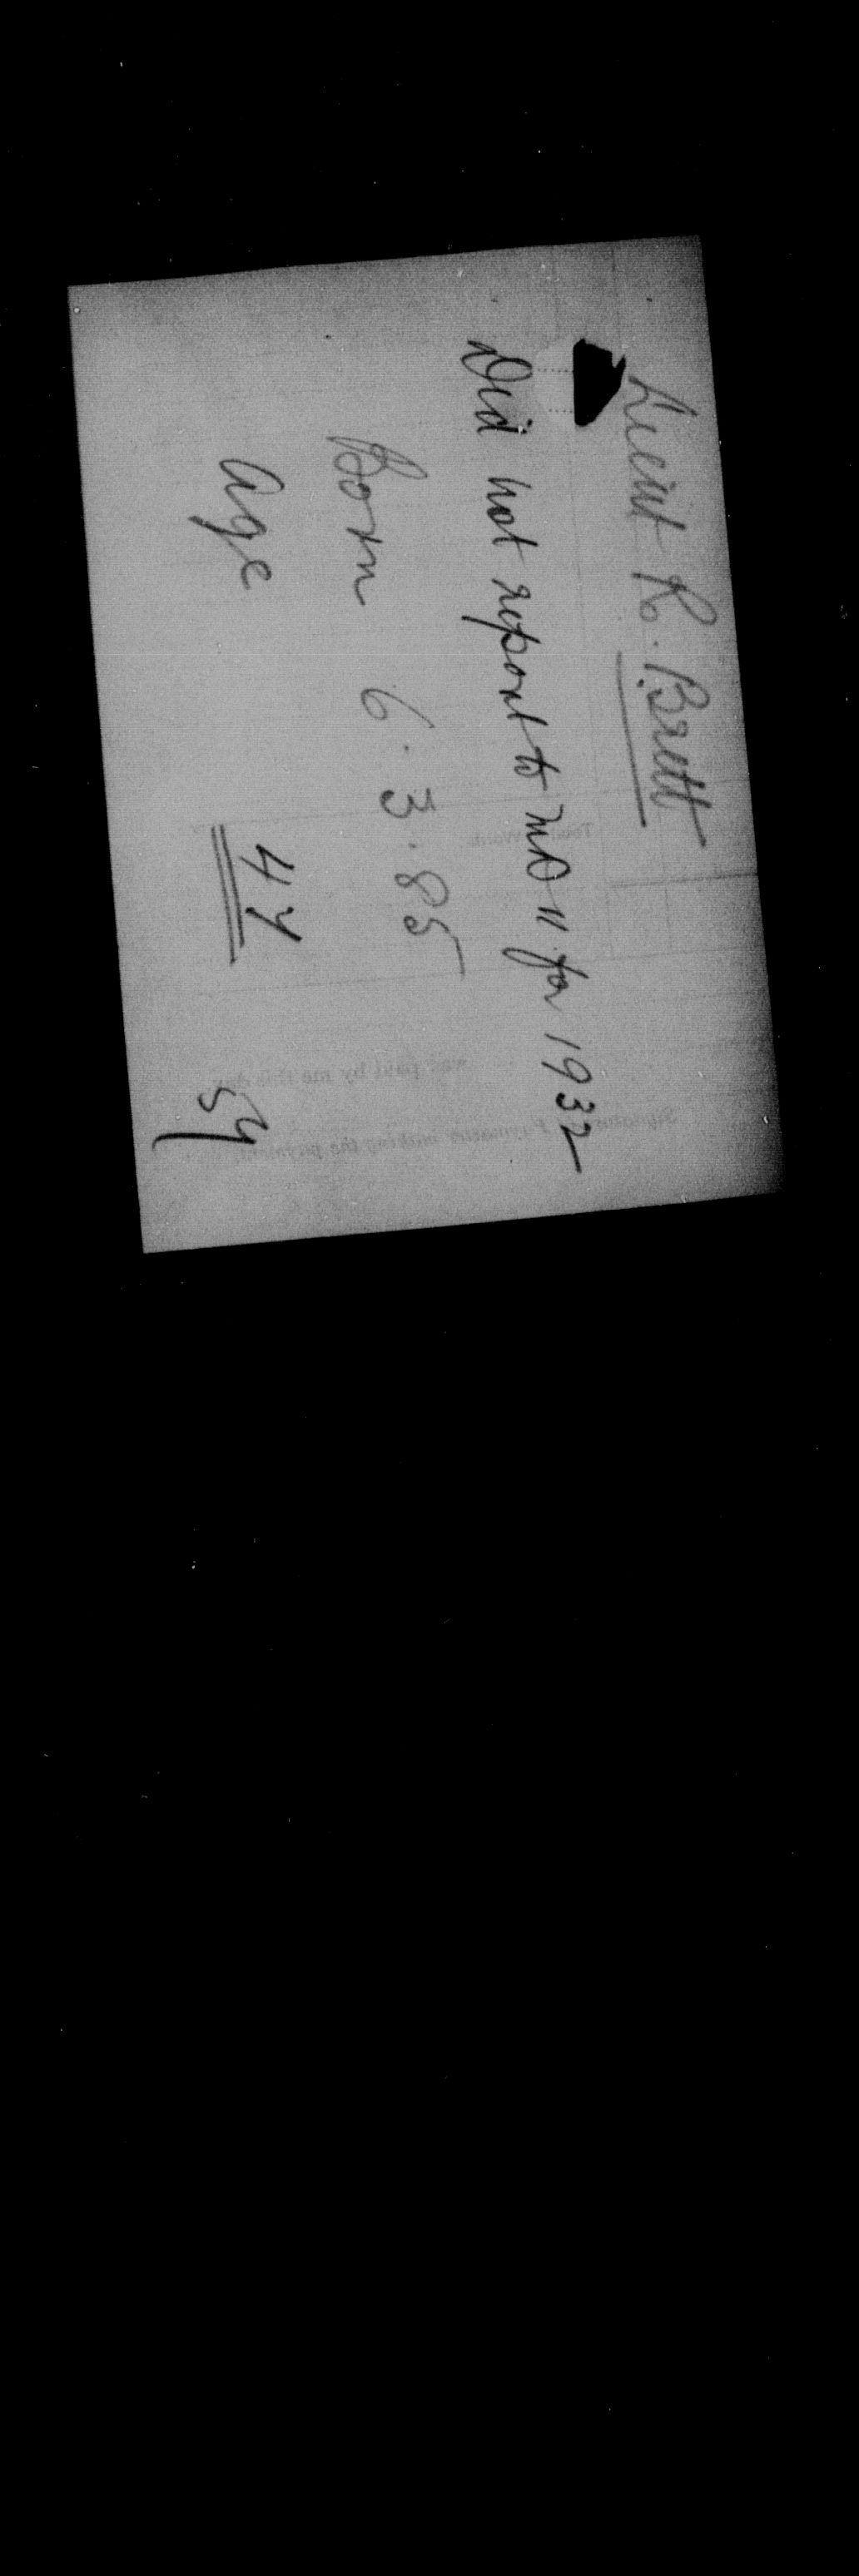 Lieut R. Brett
Did not report to MD 11 for 1932
Born 6.3.85
Age 47
Total Words
was paid by me this day
Signature of Paymaster making the payment